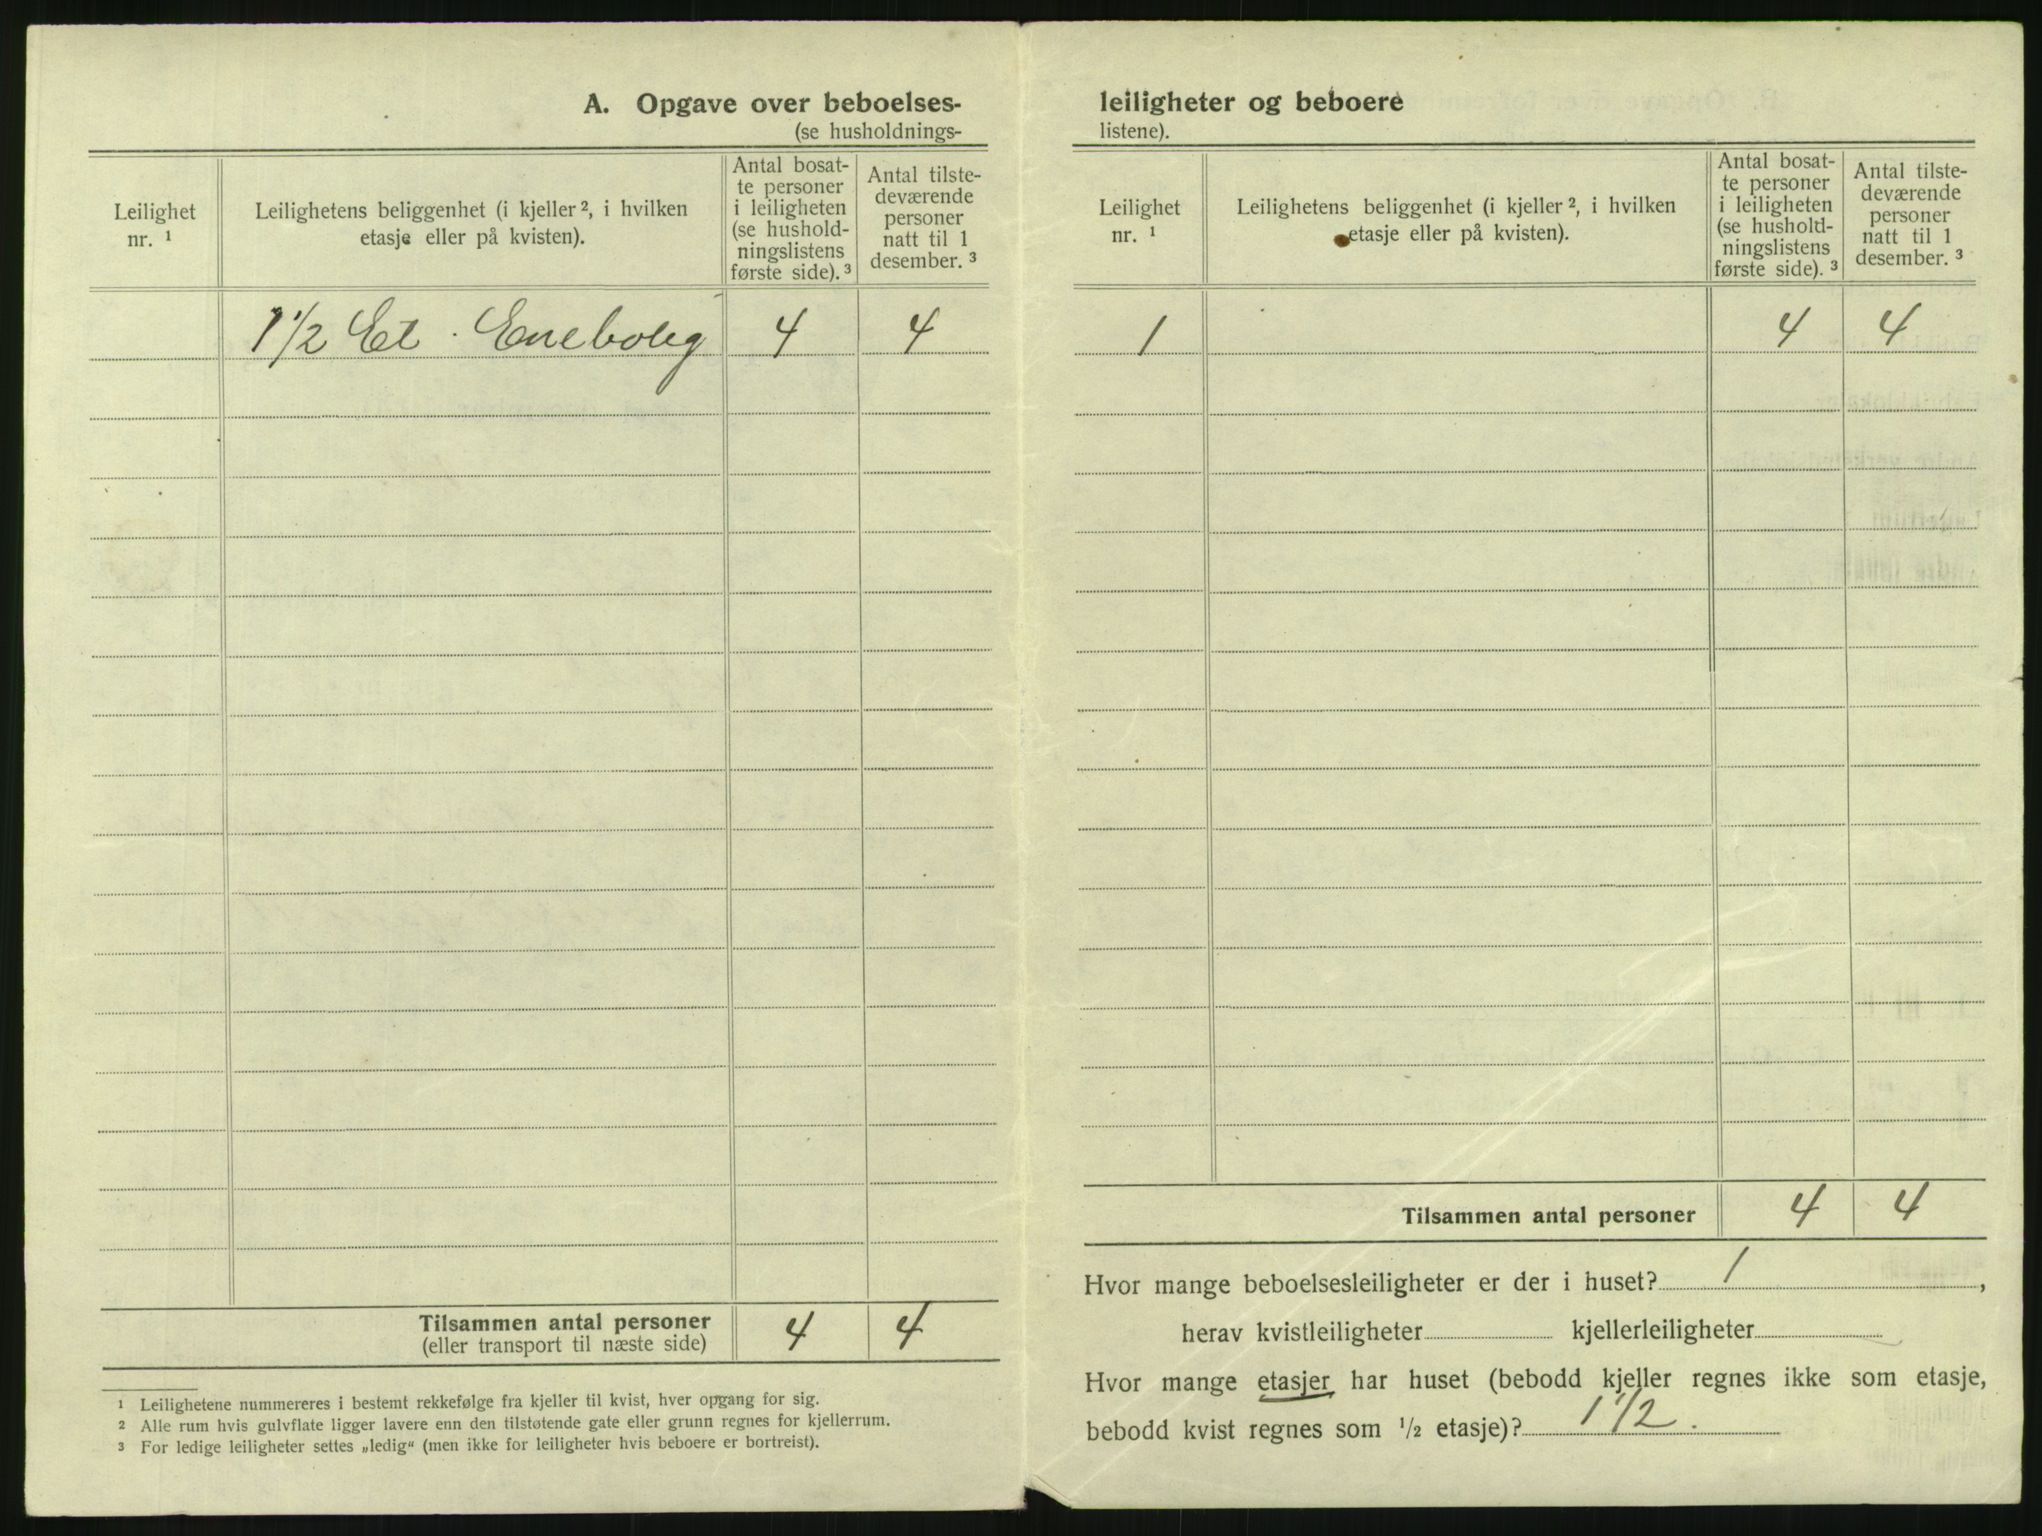 A. Opgave over beboelses-
(se husholdnings-
Leilighet
nr. ¹
Leilighetens beliggenhet (i kjeller ², i hvilken
etasje eller på kvisten).
Antal bosat-
te personer
i leiligheten
(se hushold-
ningslistens
første side). ³
Antal tilste-
deværende
personer
natt til 1
desember. ³
1 1/2 Et. Enebolig 4 4
Tilsammen antal personer 4 4
(eller transport til næste side)
¹ Leilighetene nummereres i bestemt rekkefølge fra kjeller til kvist, hver opgang for sig.
² Alle rum hvis gulvflate ligger lavere enn den tilstøtende gate eller grunn regnes for kjellerrum.
³ For ledige leiligheter settes „ledig“ (men ikke for leiligheter hvis beboere er bortreist).
leiligheter og beboere
listene).
Leilighet
nr. ¹
Leilighetens beliggenhet (i kjeller ², i hvilken
etasje eller på kvisten).
Antal bosat-
te personer
i leiligheten
(se hushold-
ningslistens
første side). ³
Antal tilste-
deværende
personer
natt til 1
desember. ³
1 4 4
Tilsammen antal personer 4 4
Hvor mange beboelsesleiligheter er der i huset? 1,
herav kvistleiligheter kjellerleiligheter
Hvor mange etasjer har huset (bebodd kjeller regnes ikke som etasje,
bebodd kvist regnes som ¹/₂ etasje)? 1 1/2.